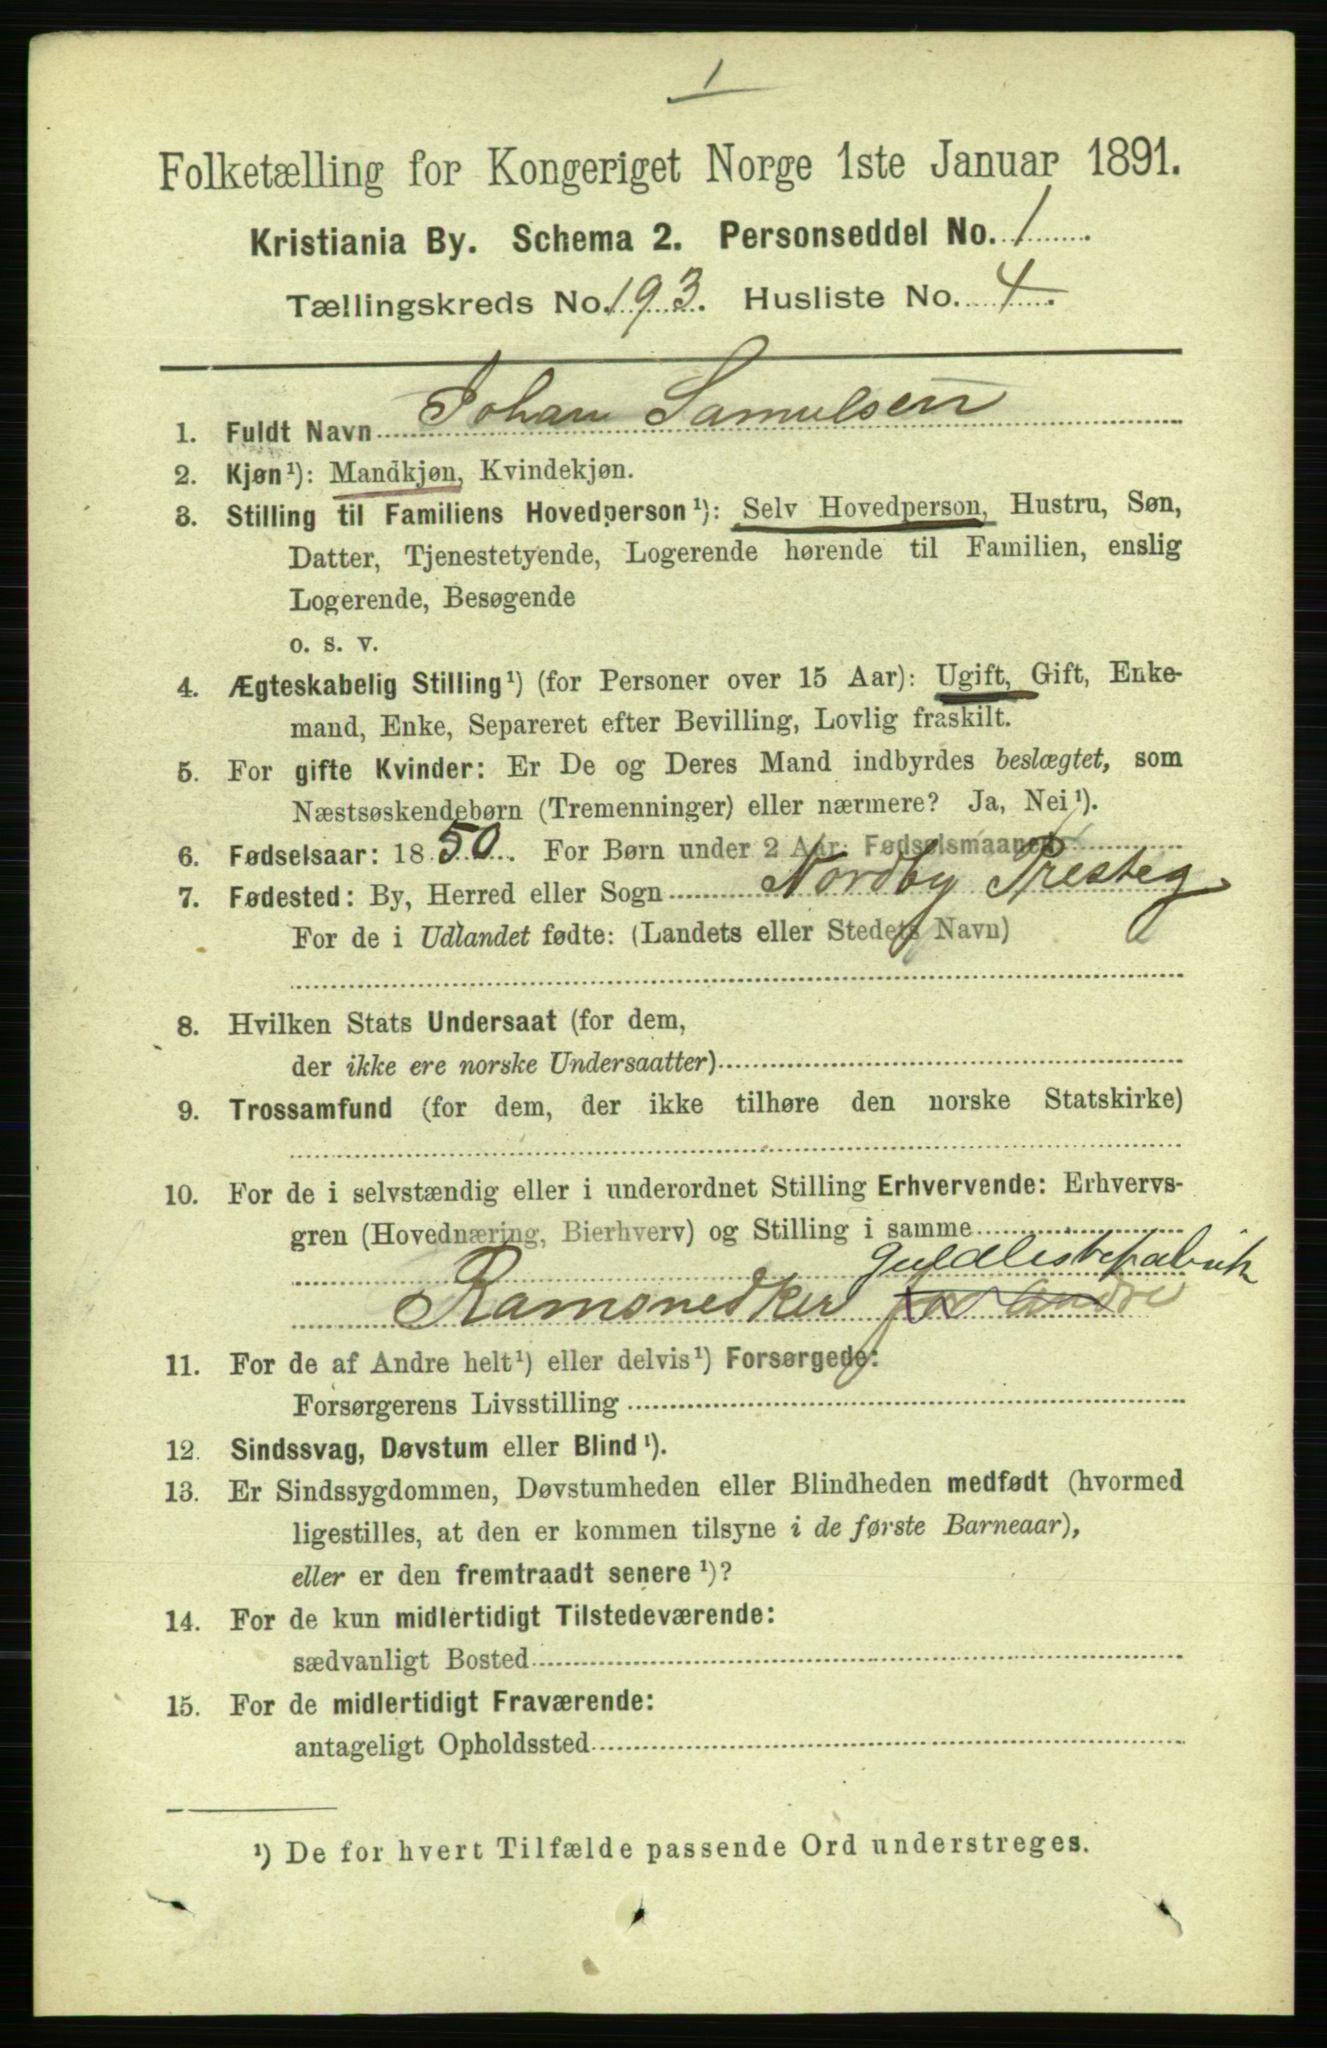 1
Folketælling for Kongeriget Norge 1ste Januar 1891.
Kristiania By. Schema 2. Personseddel No. 1
Tællingskreds No. 193. Husliste No. 4.
1. Fuldt Navn Johan Samulsen
2. Kjøn¹): Mandkjøn, Kvindekjøn.
3. Stilling til Familiens Hovedperson¹): Selv Hovedperson, Hustru, Søn,
Datter, Tjenestetyende, Logerende hørende til Familien, enslig
Logerende, Besøgende
o. s. v.
4. Ægteskabelig Stilling¹) (for Personer over 15 Aar): Ugift, Gift, Enke-
mand, Enke, Separeret efter Bevilling, Lovlig fraskilt.
5. For gifte Kvinder: Er De og Deres Mand indbyrdes beslægtet, som
Næstsøskendebørn (Tremenninger) eller nærmere? Ja, Nei¹).
6. Fødselsaar: 1850. For Børn under 2 Aar: Fødselsmaaned:
7. Fødested: By, Herred eller Sogn Nordby Presteg
For de i Udlandet fødte: (Landets eller Stedets Navn)
8. Hvilken Stats Undersaat (for dem,
der ikke ere norske Undersaatter)
9. Trossamfund (for dem, der ikke tilhøre den norske Statskirke)
10. For de i selvstændig eller i underordnet Stilling Erhvervende: Erhvervs-
gren (Hovednæring, Bierhverv) og Stilling i samme
Guldlistefabrik
Ramsnedker for andre
11. For de af Andre helt¹) eller delvis¹) Forsørgede:
Forsørgerens Livsstilling
12. Sindssvag, Døvstum eller Blind¹).
13. Er Sindssygdommen, Døvstumheden eller Blindheden medfødt (hvormed
ligestilles, at den er kommen tilsyne i de første Barneaar),
eller er den fremtraadt senere¹)?
14. For de kun midlertidigt Tilstedeværende:
sædvanligt Bosted
15. For de midlertidigt Fraværende:
antageligt Opholdssted
¹) De for hvert Tilfælde passende Ord understreges.